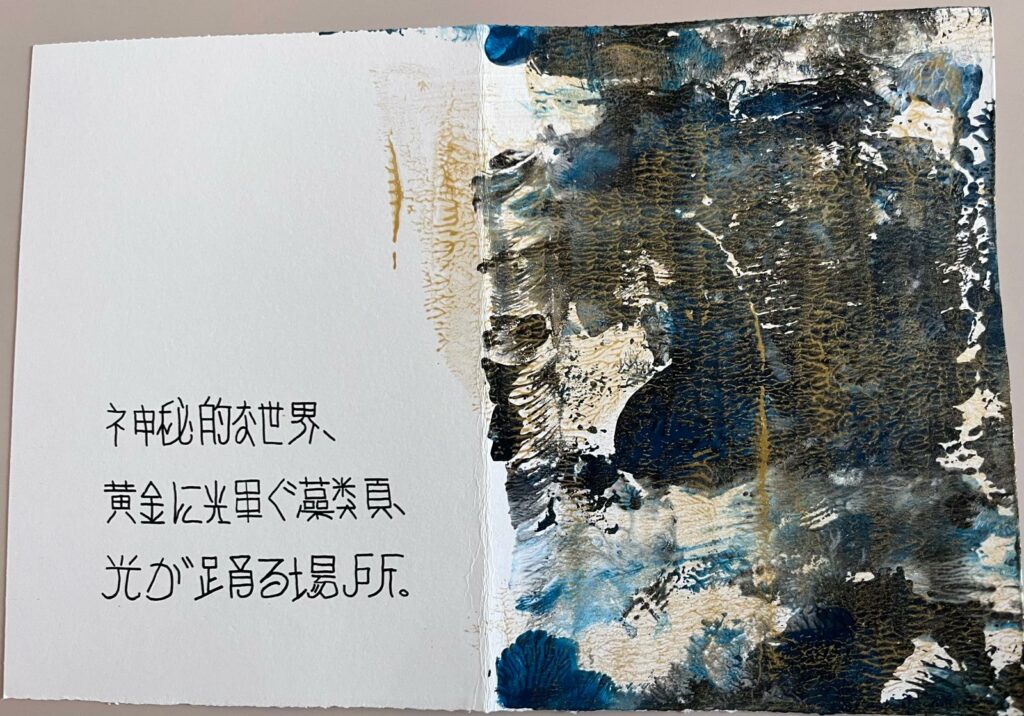 神秘的な世界、
黄金に輝ぐ藻類、
光が踊る場所。